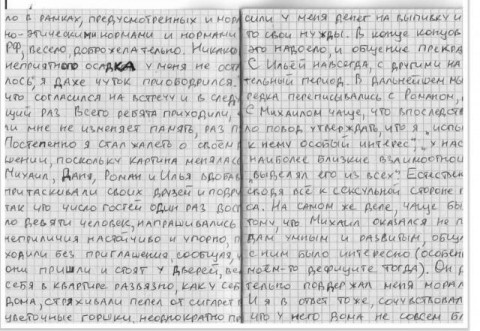 ло в рамках, предусмотренных и мора
но-этическими нормами и нормами
РФ, весело, доброжелательно. Никако
неприятного осадка у меня не ост
лось, я даже чуток приободрился.
что согласился на встречу и в след
щий раз. Всего ребята приходили,
ли мне не изменяет память, раз п
Постепенно я стал жалеть о своем р
шении, поскольку картина менялас
Михаил, Даня, Роман и Илья вдоба
притаскивали своих друзей и подру
так что число гостей один раз вос
ло девяти человек, напрашивались
неприличия настойчиво и упорно, п
ходили без приглашения, сообщуя,
они пришли и стоят у дверей, ве
себя в квартире развязно, как у себ
дома, стряхивали пепел от сигарет в
цветочные горшки, неоднократно пр
сили у меня денег на выпивку и
то свои нужды. В конце концов
это надоело, и общение прекра
С Ильей навсегда, с другими на
тельный период. В дальнейшем мы
редка переписывались с Романом,
С Михаилом чаще, что впоследств
ло повод утверждать, что я "испы
к нему особый интерес", у нас
наиболее близкие взаимоотнош
"выделял его из всех". Естествен
сводя всё к сексуальной стороне
са. На самом же деле, чаще бы
тому, что Михаил оказался не п
дам умным и развитым, общ
с ним было интересно (особен
ном-то дефиците тогда). Он
тельно поддержал меня морал
И я в ответ тоже, сочувствова
что у него дома не совсем б